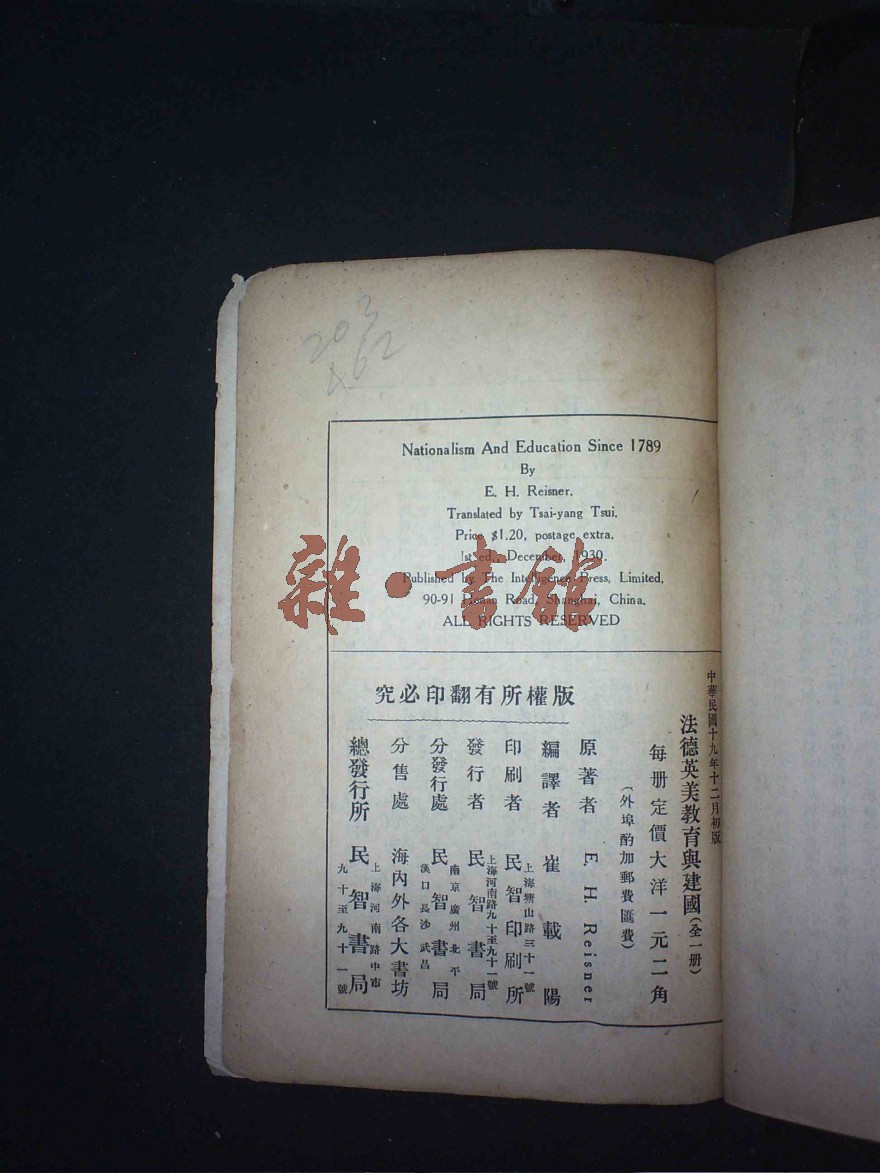 203
462
Nationalism And Education Since 1789
By
E. H. Reisner.
Translated by Tsai-yang Tsui.
Price $1.20, postage extra.
1st ed., December, 1930.
Published by The Intelligence Press, Limited,
90-91 Honan Road, Shanghai, China.
ALL RIGHTS RESERVED
雜·書館
究必印翻有所權版
中華民國十九年十二月初版
法德英美教育與建國(全一册)
每册定價大洋一元二角
(外埠酌加郵費匯費)
原著者 E. H. Reisner
編譯者 崔載陽
印刷者 民智印刷所
上海塘山路三十一號
發行者 民智書局
上海河南路九十至九十一號
分發行處 民智書局
南京廣州北平
漢口長沙武昌
分售處 海內外各大書坊
總發行所 民智書局
上海河南路中市
九十至九十一號